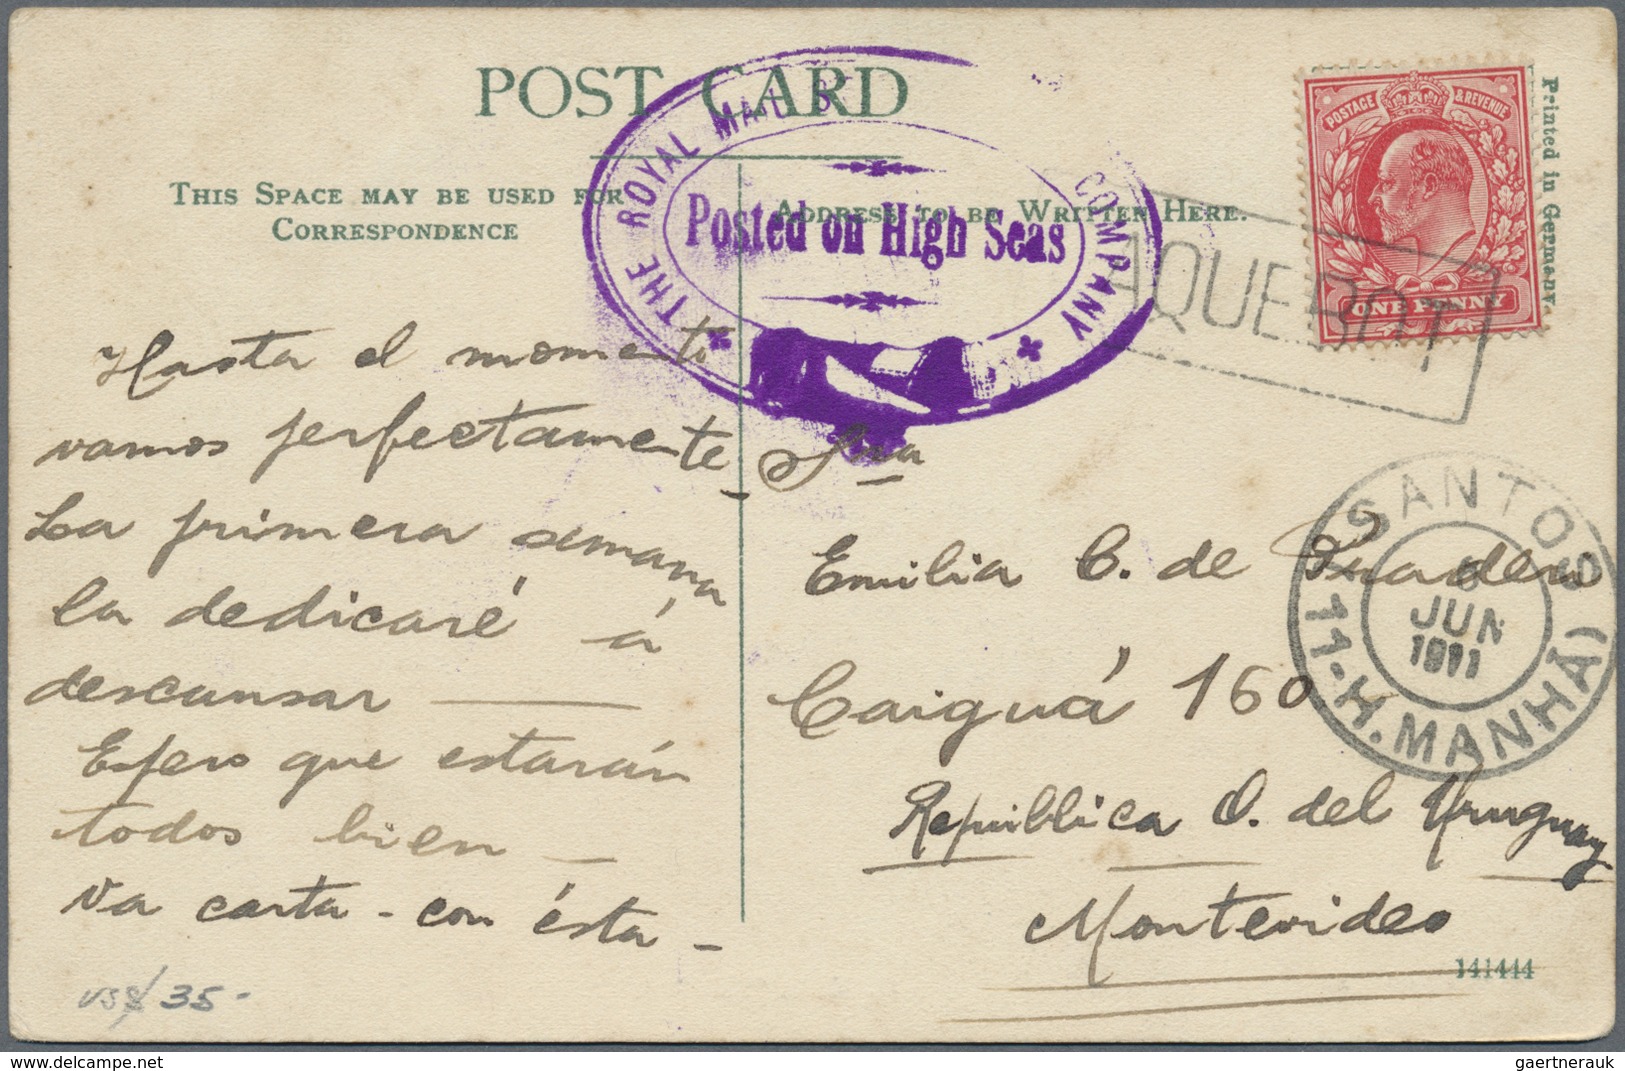 POST CARD
THIS SPACE MAY BE USED FOR
CORRESPONDENCE
ADDRESS TO BE WRITTEN HERE.
THE ROYAL MAIL S COMPANY
Posted on High Seas
POSTAGE & REVENUE
ONE PENNY
Printed in Germany.
AQUEBOT
SANTOS
6
JUN
1911
11-H.MANHÃ)
Hasta el momento
vamos perfectamente
La primera semana
la dedicaré á
descansar
Espero que estarán
todos bien
Va carta - con ésta -
Sra
Emilia C. de
Caiguá 160
República O. del Uruguay
Montevideo
141444
US$/35-
gaertnerauk@delcampe.net